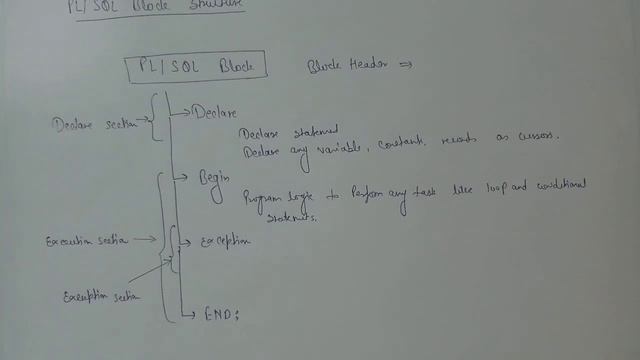 PL/SQL Block Structure
PL/SQL Block
Block Header ⇒
Declare section
Declare
Declare statement
Declare any variable, constant, records as cursors.
Begin
Program logic to Perform any task like loop and conditional
statements.
Execution section
Exception
Exception section
END;